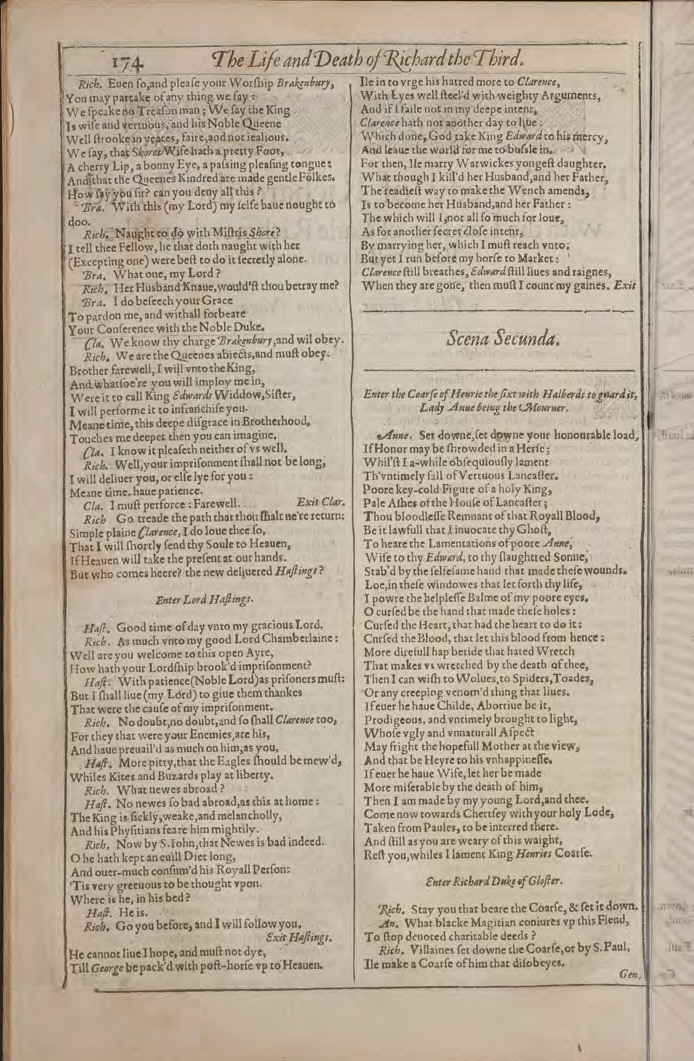 174
The Life and Death of Richard the Third.
Rich. Euen ſo,and pleaſe your Worſhip Brakenbury,
You may partake of any thing we ſay :
We ſpeake no Treaſon man ; We ſay the King
Is wiſe and vertuous, and his Noble Queene
Well ſtrooke in yeares, faire,and not iealious.
We ſay, that Shores Wife hath a pretty Foot,
A cherry Lip, a bonny Eye, a paſsing pleaſing tongue :
And that the Queenes Kindred are made gentle Folkes.
How ſay you ſir? can you deny all this ?
Bra. With this (my Lord) my ſelfe haue nought to
doo.
Rich. Naught to do with Miſtris Shore?
I tell thee Fellow, he that doth naught with her
(Excepting one) were beſt to do it ſecretly alone.
Bra. What one, my Lord ?
Rich. Her Husband Knaue,would'ſt thou betray me?
Bra. I do beſeech your Grace
To pardon me, and withall forbeare
Your Conference with the Noble Duke.
Cla. We know thy charge Brakenbury,and wil obey.
Rich. We are the Queenes abiects,and muſt obey.
Brother farewell, I will vnto the King,
And whatſoe're you will imploy me in,
Were it to call King Edwards Widdow,Siſter,
I will performe it to infranchiſe you.
Meane time, this deepe diſgrace in Brotherhood,
Touches me deeper then you can imagine.
Cla. I know it pleaſeth neither of vs well.
Rich. Well,your impriſonment ſhall not be long,
I will deliuer you, or elſe lye for you :
Meane time, haue patience.
Cla. I muſt perforce : Farewell. Exit Clar.
Rich Go treade the path that thou ſhalt ne're return:
Simple plaine Clarence,I do loue thee ſo,
That I will ſhortly ſend thy Soule to Heauen,
If Heauen will take the preſent at our hands.
But who comes heere? the new deliuered Haſtings?
Enter Lord Haſtings.
Haſt. Good time of day vnto my gracious Lord.
Rich. As much vnto my good Lord Chamberlaine :
Well are you welcome to this open Ayre,
How hath your Lordſhip brook'd impriſonment?
Haſt. With patience(Noble Lord)as priſoners muſt:
But I ſhall liue (my Lord) to giue them thankes
That were the cauſe of my impriſonment.
Rich. No doubt,no doubt,and ſo ſhall Clarence too,
For they that were your Enemies,are his,
And haue preuail'd as much on him,as you,
Haſt. More pitty,that the Eagles ſhould be mew'd,
Whiles Kites and Buzards play at liberty.
Rich. What newes abroad ?
Haſt. No newes ſo bad abroad,as this at home :
The King is ſickly,weake,and melancholly,
And his Phyſitians feare him mightily.
Rich. Now by S.Iohn,that Newes is bad indeed.
O he hath kept an euill Diet long,
And ouer-much conſum'd his Royall Perſon:
'Tis very greeuous to be thought vpon.
Where is he, in his bed ?
Haſt. He is.
Rich. Go you before, and I will follow you.
Exit Haſtings.
He cannot liue I hope, and muſt not dye,
Till George be pack'd with poſt-horſe vp to Heauen.
Ile in to vrge his hatred more to Clarence,
With Lyes well ſteel'd with weighty Arguments,
And if I faile not in my deepe intent,
Clarence hath not another day to liue :
Which done, God take King Edward to his mercy,
And leaue the world for me to buſsle in.
For then, Ile marry Warwickes yongeſt daughter.
What though I kill'd her Husband,and her Father,
The readieſt way to make the Wench amends,
Is to become her Husband,and her Father :
The which will I,not all ſo much for loue,
As for another ſecret cloſe intent,
By marrying her, which I muſt reach vnto.
But yet I run before my horſe to Market :
Clarence ſtill breathes, Edward ſtill liues and raignes,
When they are gone, then muſt I count my gaines. Exit
Scena Secunda.
Enter the Coarſe of Henrie the ſixt with Halberds to guard it,
Lady Anne being the Mourner.
Anne. Set downe,ſet downe your honourable load,
If Honor may be ſhrowded in a Herſe ;
Whil'ſt I a-while obſequiouſly lament
Th'vntimely fall of Vertuous Lancaſter.
Poore key-cold Figure of a holy King,
Pale Aſhes of the Houſe of Lancaſter ;
Thou bloodleſſe Remnant of that Royall Blood,
Be it lawfull that I inuocate thy Ghoſt,
To heare the Lamentations of poore Anne,
Wife to thy Edward, to thy ſlaughtred Sonne,
Stab'd by the ſelfeſame hand that made theſe wounds.
Loe,in theſe windowes that let forth thy life,
I powre the helpleſſe Balme of my poore eyes.
O curſed be the hand that made theſe holes :
Curſed the Heart,that had the heart to do it :
Curſed the Blood, that let this blood from hence :
More direfull hap betide that hated Wretch
That makes vs wretched by the death of thee,
Then I can wiſh to Wolues,to Spiders,Toades,
Or any creeping venom'd thing that liues.
If euer he haue Childe, Abortiue be it,
Prodigeous, and vntimely brought to light,
Whoſe vgly and vnnaturall Aſpect
May fright the hopefull Mother at the view,
And that be Heyre to his vnhappineſſe.
If euer he haue Wife, let her be made
More miſerable by the death of him,
Then I am made by my young Lord,and thee.
Come now towards Chertſey with your holy Lode,
Taken from Paules, to be interred there.
And ſtill as you are weary of this waight,
Reſt you,whiles I lament King Henries Coarſe.
Enter Richard Duke of Gloſter.
Rich. Stay you that beare the Coarſe, & ſet it down.
An. What blacke Magitian coniures vp this Fiend,
To ſtop deuoted charitable deeds ?
Rich. Villaines ſet downe the Coarſe,or by S.Paul,
Ile make a Coarſe of him that diſobeyes.
Gen.